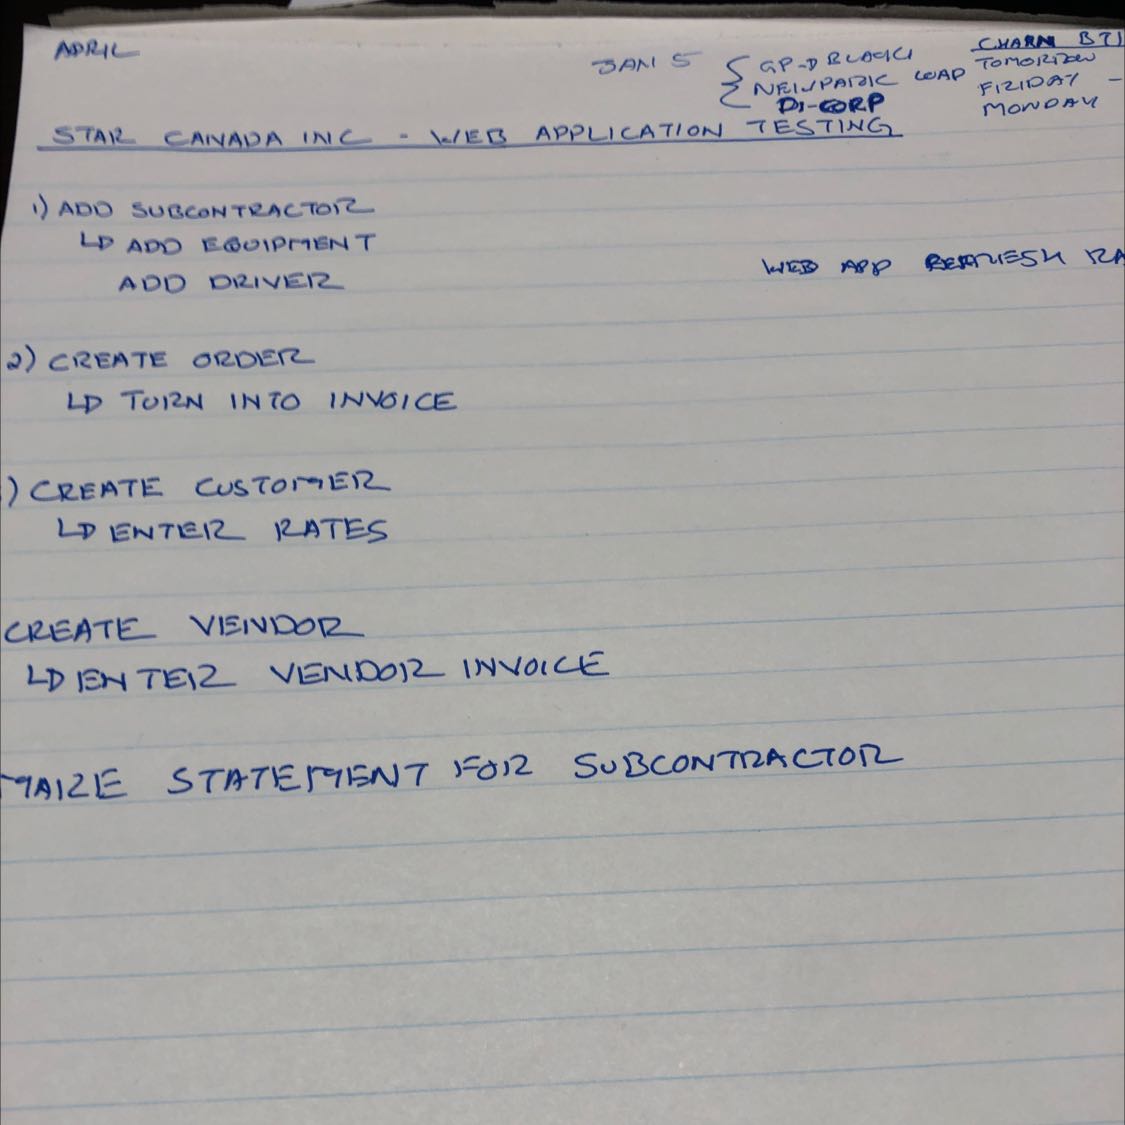 APRIL
JAN 5 { GP → BLACK
NEWPARK LOAD
DI-CORP
TOMORROW
FRIDAY -
MONDAY
STAR CANADA INC - WEB APPLICATION TESTING
1) ADD SUBCONTRACTOR
↳ ADD EQUIPMENT
ADD DRIVER
WEB APP REFRESH RA
2) CREATE ORDER
↳ TURN INTO INVOICE
) CREATE CUSTOMER
↳ ENTER RATES
CREATE VENDOR
↳ ENTER VENDOR INVOICE
MAKE STATEMENT FOR SUBCONTRACTOR